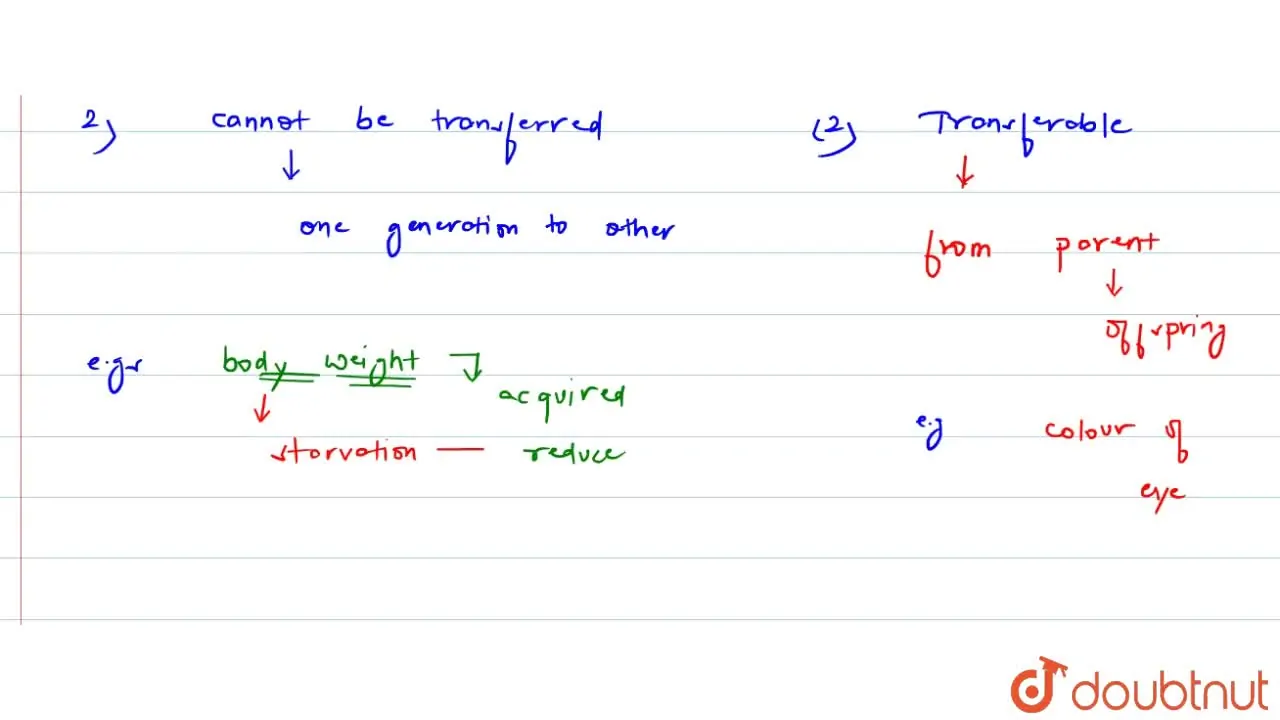 2) cannot be transferred
↓
one generation to other
e.g:- body weight
acquired
↓
starvation — reduce
(2) Transferable
↓
from parent
↓
offspring
e.g colour of
eye
doubtnut